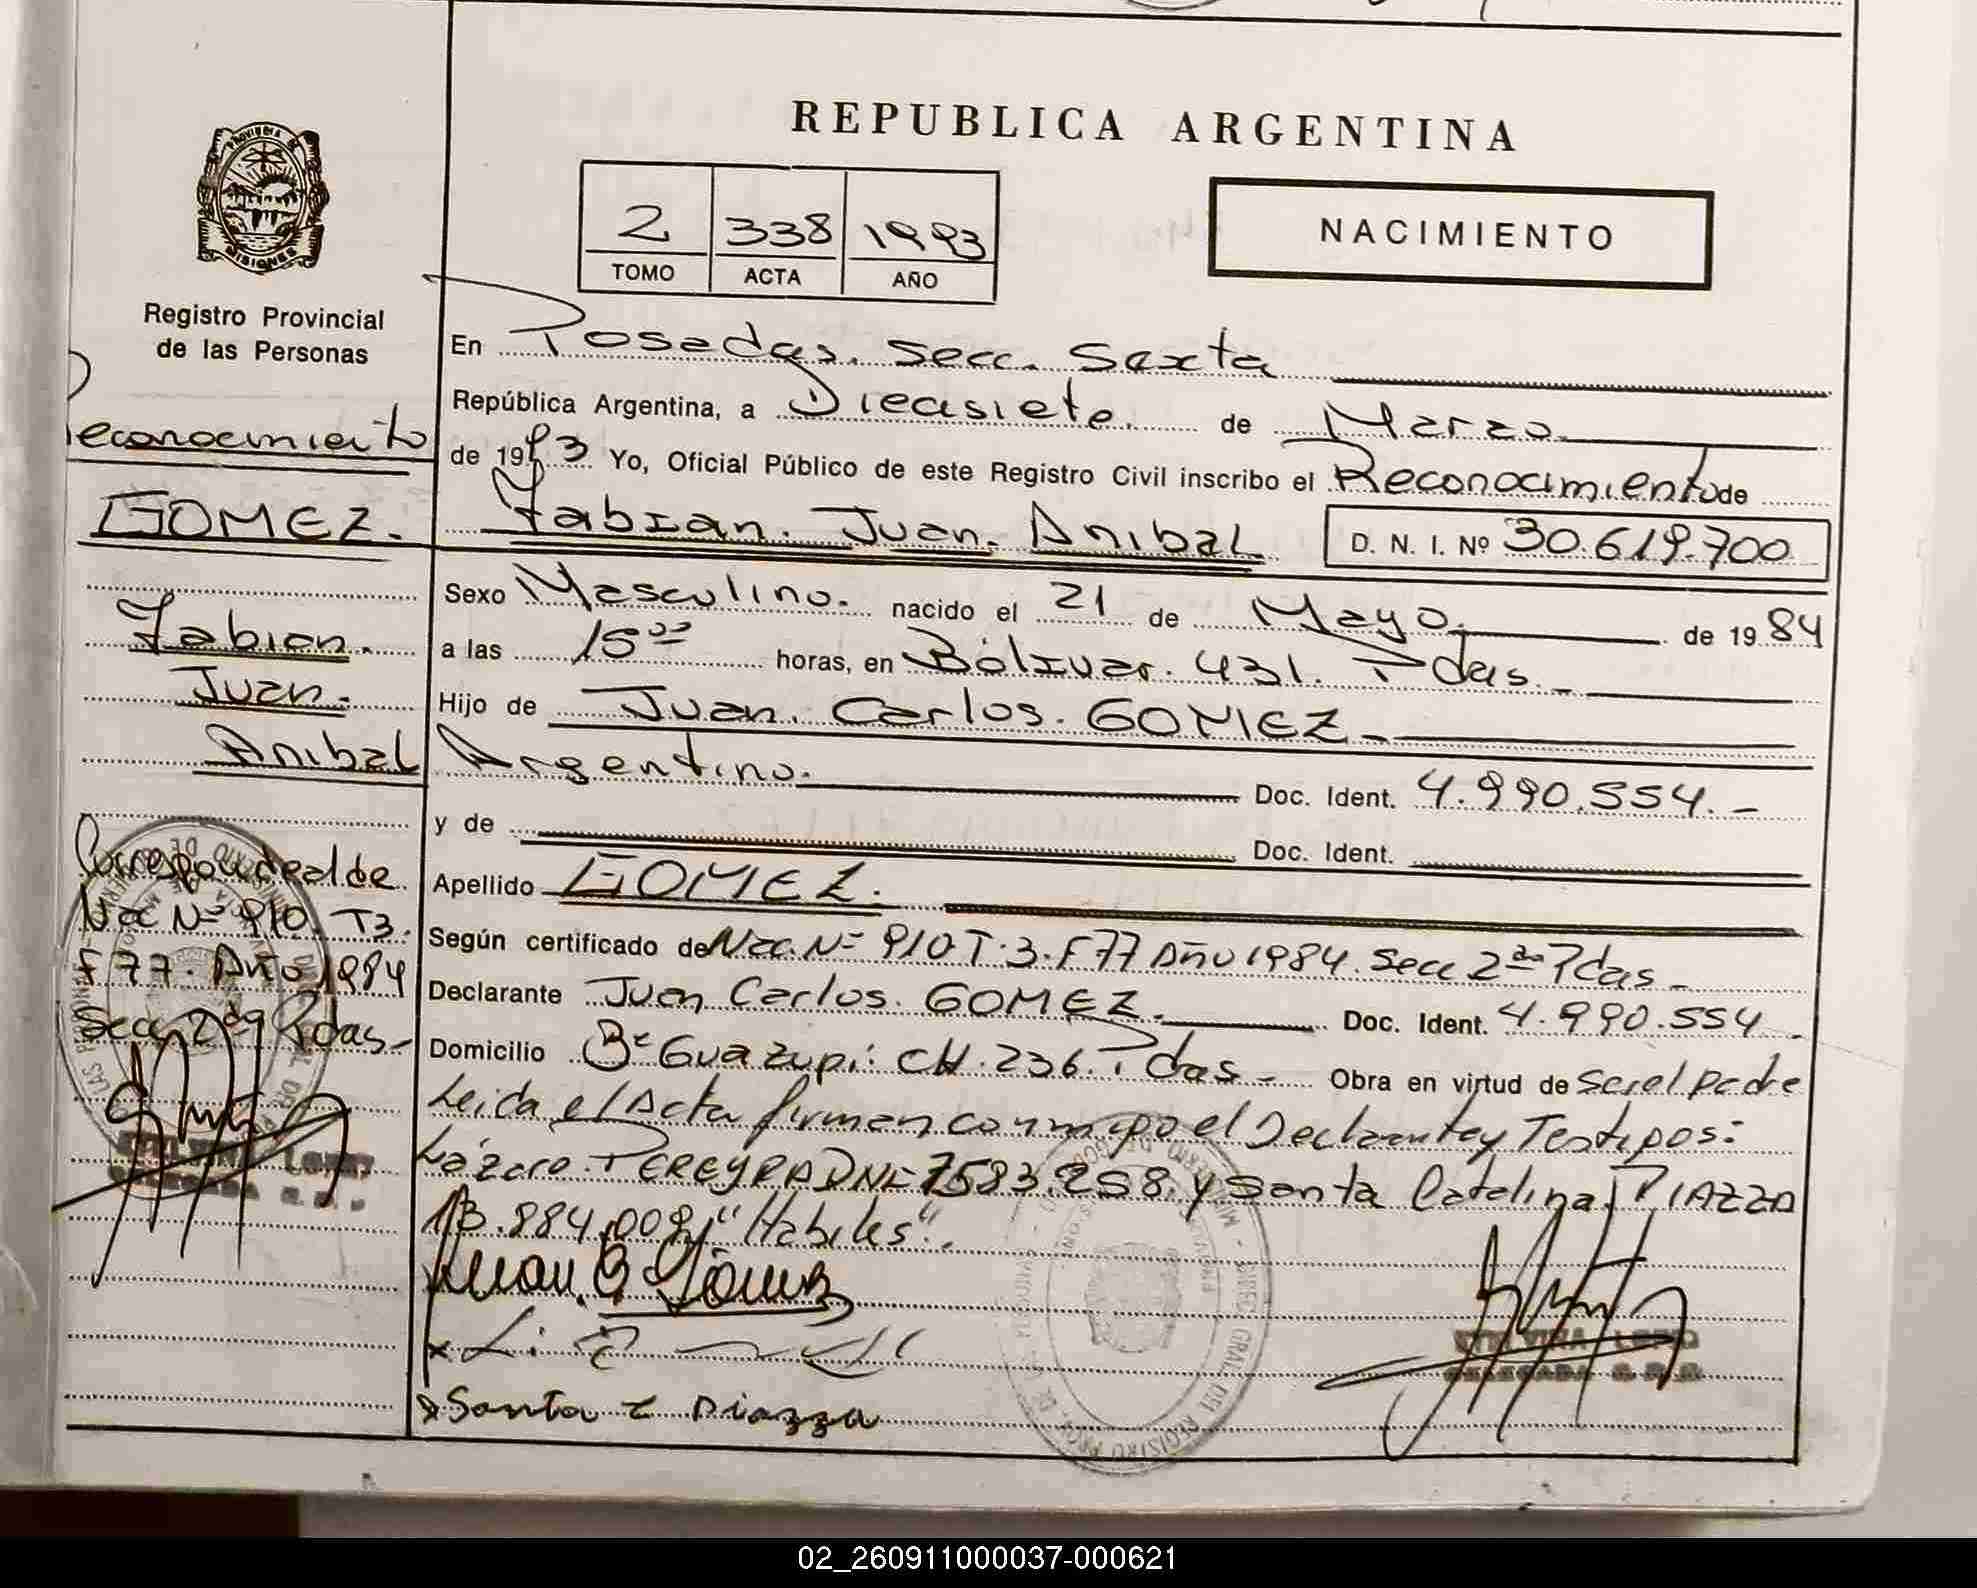 REPUBLICA ARGENTINA
PROVINCIA DE MISIONES
Registro Provincial
de las Personas
2 338 1993
TOMO ACTA AÑO
NACIMIENTO
Reconocimiento
GOMEZ.
Fabian.
Juan.
Anibal
Corresponde al de
Nac Nº 910. T3.
F 77. Año 1984
Secc 2da Pdas-
En Posadas. secc. Sexta
República Argentina, a Diecisiete. de Marzo.
de 1993 Yo, Oficial Público de este Registro Civil inscribo el Reconocimiento de
Fabian. Juan. Anibal D. N. I. Nº 30.619.700
Sexo Masculino. nacido el 21 de Mayo. de 1984
a las 15 00 horas, en Bolivar. 431. Pdas.-
Hijo de Juan. Carlos. GOMEZ.-
Argentino. Doc. Ident. 4.990.554.-
y de Doc. Ident.
Apellido GOMEZ.
Según certificado de Nac. Nº 910 T.3.F77 Año 1984. Secc 2da Pdas-
Declarante Juan Carlos. GOMEZ. Doc. Ident. 4.990.554-
Domicilio Bº Guazupi: CH.236. Pdas- Obra en virtud de ser el padre
Leida el Acta firman conmigo el Declarante y Testigos:
Lázaro. PEREYRA DNI 7583.258. y Santa Catalina PIAZZA
13.884.009 "Habiles".
Juan. C Gómez
Santa C Piazza
02_260911000037-000621